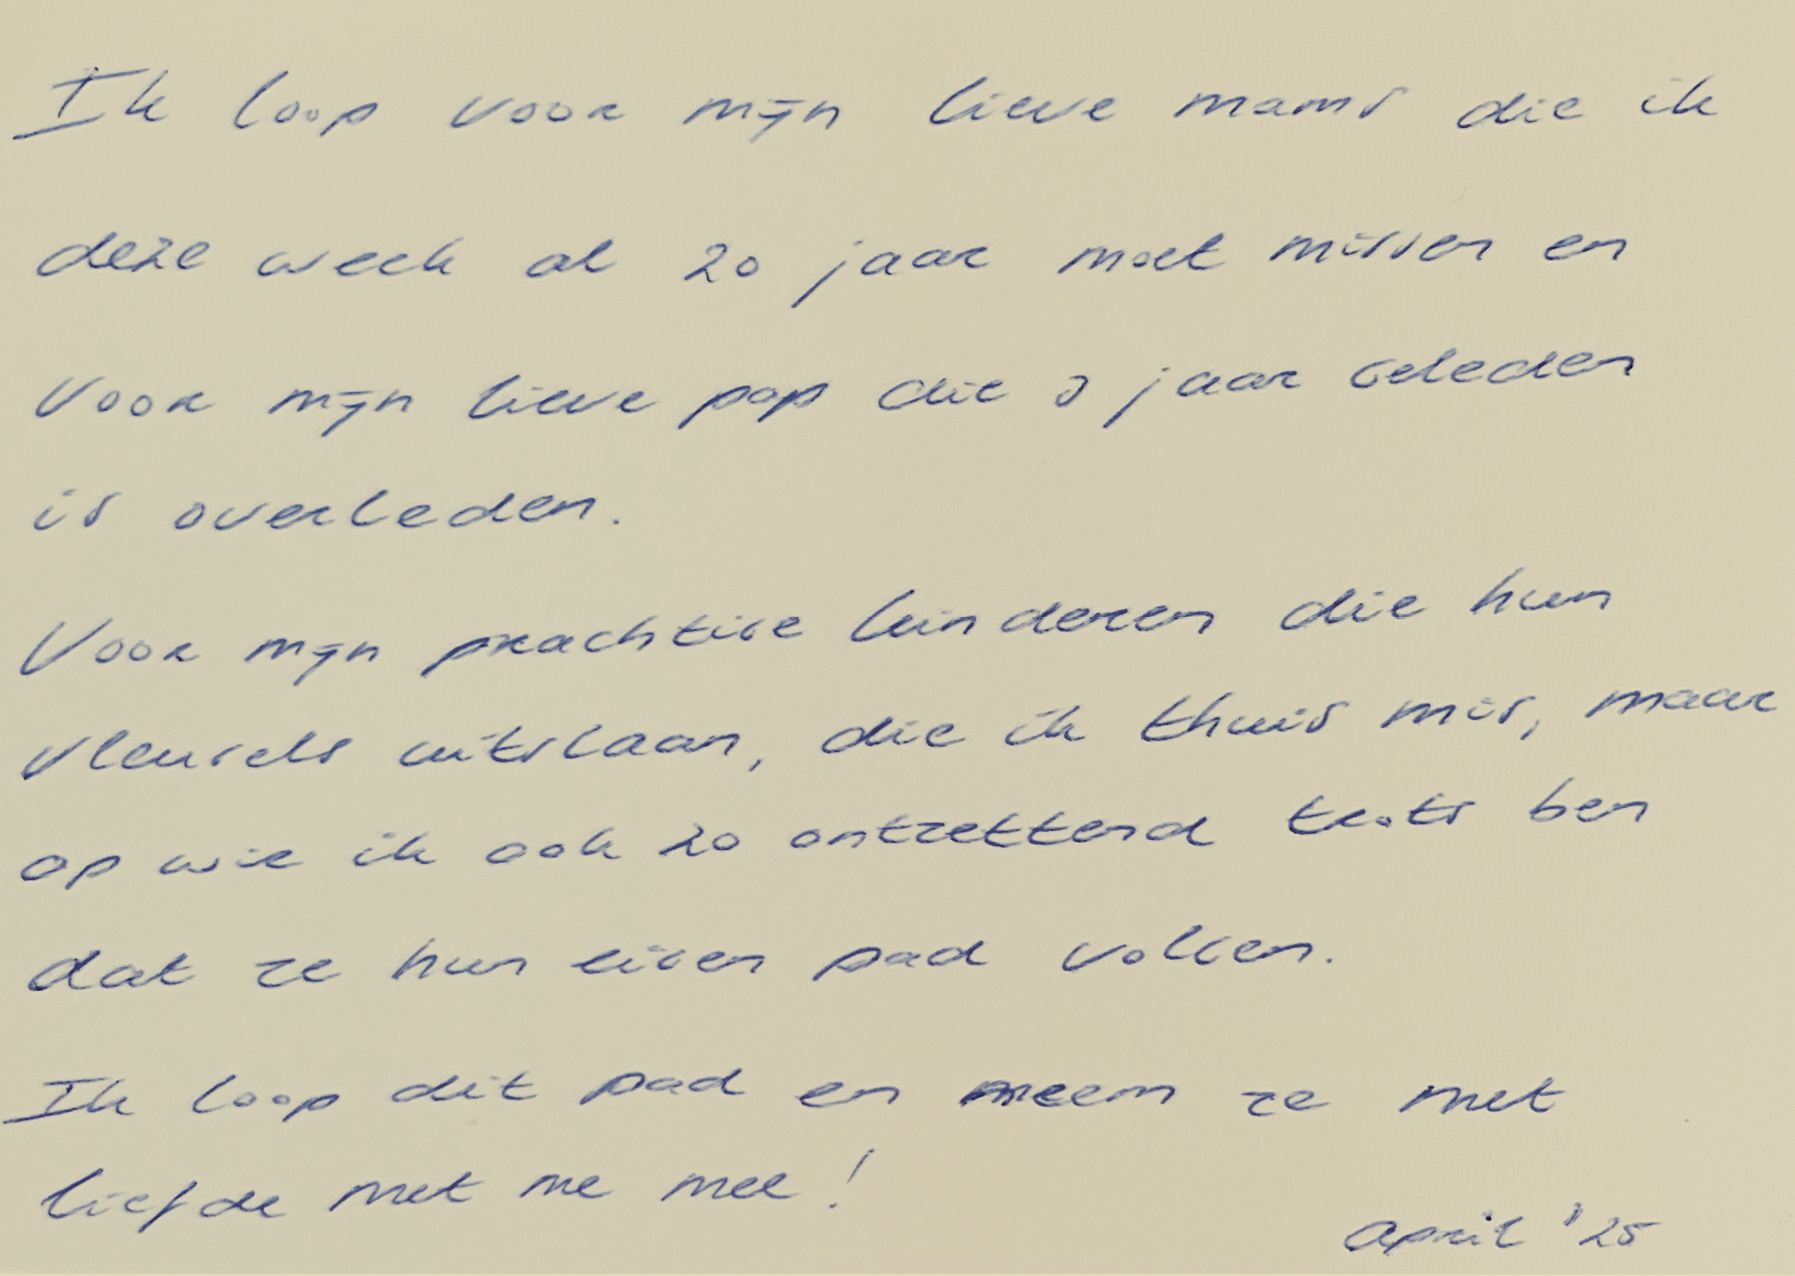 Ik loop voor mijn lieve mams die ik
deze week al 20 jaar moet missen en
voor mijn lieve pap die 3 jaar geleden
is overleden.
Voor mijn prachtige kinderen die hun
vleugels uitslaan, die ik thuis mis, maar
op wie ik ook zo ontzettend trots ben
dat ze hun eigen pad volgen.
Ik loop dit pad en neem ze met
liefde met me mee!
April '25